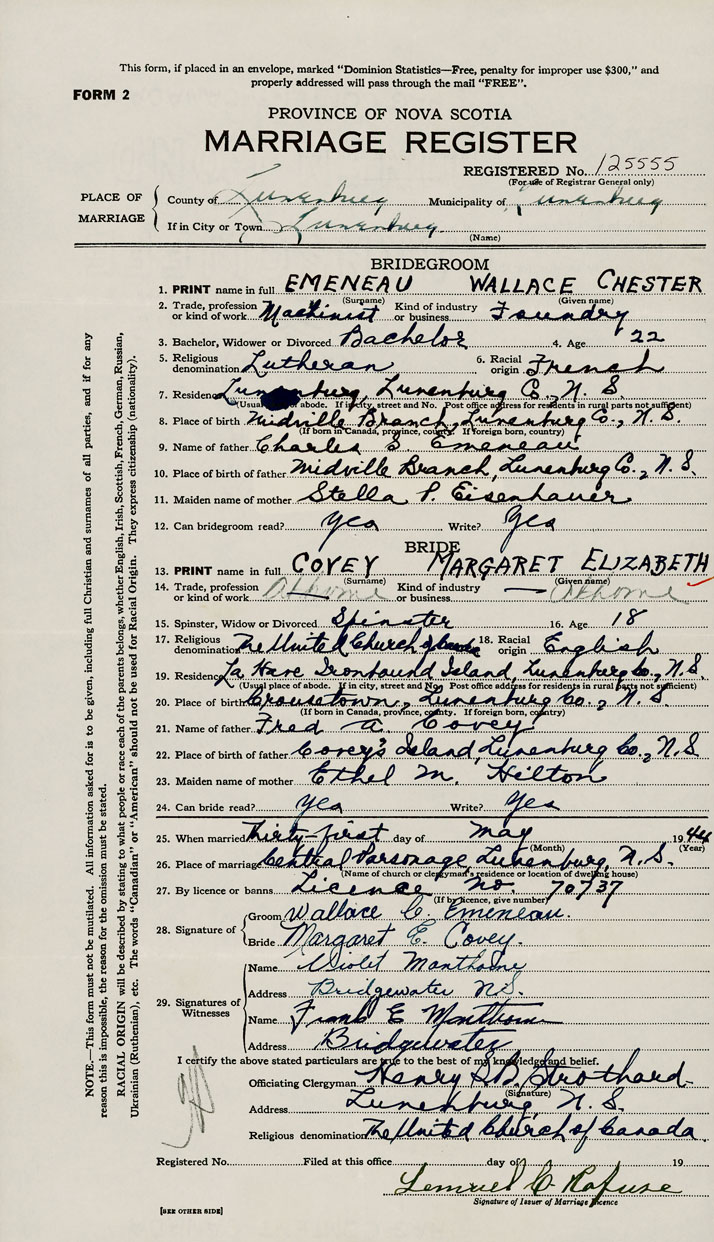 This form, if placed in an envelope, marked "Dominion Statistics—Free, penalty for improper use $300," and
properly addressed will pass through the mail "FREE".
FORM 2
PROVINCE OF NOVA SCOTIA
MARRIAGE REGISTER
REGISTERED No. 125555
(For use of Registrar General only)
PLACE OF MARRIAGE
County of Lunenburg Municipality of Lunenburg
If in City or Town Lunenburg
(Name)
BRIDEGROOM
1. PRINT name in full EMENEAU WALLACE CHESTER
(Surname) (Given name)
2. Trade, profession or kind of work Machinist Kind of industry or business Foundry
3. Bachelor, Widower or Divorced Bachelor 4. Age 22
5. Religious denomination Lutheran 6. Racial origin French
7. Residence Lunenburg, Lunenburg Co., N. S.
(Usual place of abode. If in city, street and No. Post office address for residents in rural parts not sufficient)
8. Place of birth Midville Branch, Lunenburg Co., N. S.
(If born in Canada, province, county. If foreign born, country)
9. Name of father Charles S. Emeneau
10. Place of birth of father Midville Branch, Lunenburg Co., N. S.
11. Maiden name of mother Stella P. Eisenhauer
12. Can bridegroom read? Yes Write? Yes
BRIDE
13. PRINT name in full COVEY MARGARET ELIZABETH
(Surname) (Given name)
14. Trade, profession or kind of work At home Kind of industry or business — At home
15. Spinster, Widow or Divorced Spinster 16. Age 18
17. Religious denomination The United Church of Canada 18. Racial origin English
19. Residence La Have Ironbound Island, Lunenburg Co., N. S.
(Usual place of abode. If in city, street and No. Post office address for residents in rural parts not sufficient)
20. Place of birth Crousetown, Lunenburg Co., N. S
(If born in Canada, province, county. If foreign born, country)
21. Name of father Fred A. Covey
22. Place of birth of father Covey's Island, Lunenburg Co., N. S
23. Maiden name of mother Ethel M. Hilton
24. Can bride read? Yes Write? Yes
25. When married Thirty-first day of May 1944
(Month) (Year)
26. Place of marriage Central Parsonage, Lunenburg, N. S.
(Name of church or clergyman's residence or location of dwelling house)
27. By licence or banns Licence No. 70737
(If by licence, give number)
28. Signature of
Groom Wallace C. Emeneau.
Bride Margaret E. Covey.
29. Signatures of Witnesses
Name Violet Manthorne
Address Bridgewater N.S.
Name Frank E Manthorne
Address Bridgewater
I certify the above stated particulars are true to the best of my knowledge and belief.
Officiating Clergyman Henry S.B. Strothard
(Signature)
Address Lunenburg N. S.
Religious denomination The United Church of Canada
Registered No. Filed at this office day of 19
Lemuel C. Rafuse
Signature of Issuer of Marriage Licence
[SEE OTHER SIDE]
NOTE.—This form must not be mutilated. All information asked for is to be given, including full Christian and surnames of all parties, and if for any
reason this is impossible, the reason for the omission must be stated.
RACIAL ORIGIN will be described by stating to what people or race each of the parents belongs, whether English, Irish, Scottish, French, German, Russian,
Ukrainian (Ruthenian), etc. The words "Canadian" or "American" should not be used for Racial Origin. They express citizenship (nationality).